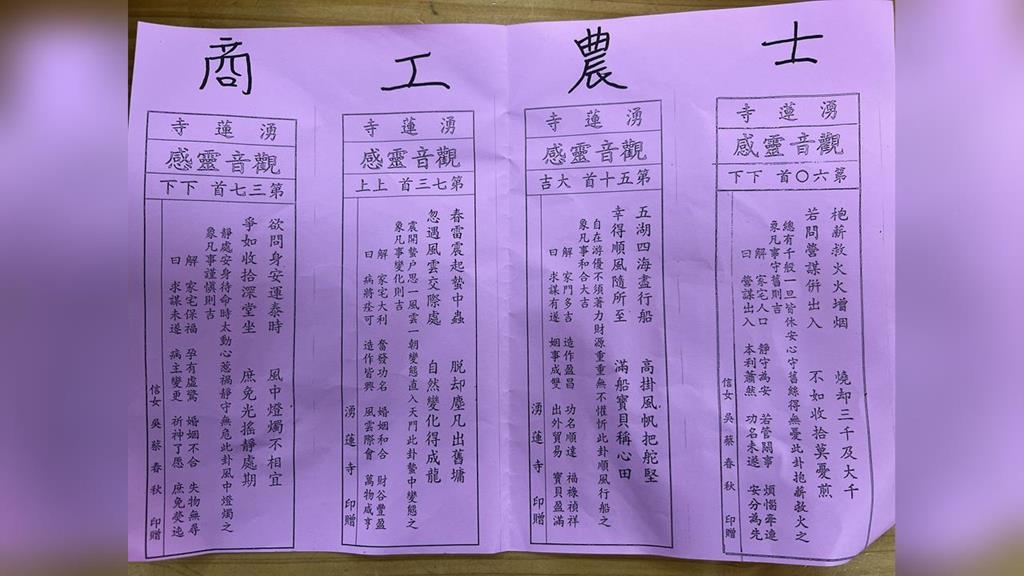 士 農 工 商
湧蓮寺
觀音靈感
第六〇首 下下
袍薪救火火增烟 燒却三千及大千
若問營謀併出入 不如收拾莫憂煎
總有千般一旦皆休安心守舊終得無憂此卦抱薪救火之
象凡事守舊則吉
解 家宅人口 靜守為安 若管閑事 煩惱牽連
曰 營謀出入 本利蕭然 功名未遂 安分為先
信女 吳蔡春秋 印贈
湧蓮寺
觀音靈感
第五十首 大吉
五湖四海盡行船 高掛風帆把舵堅
幸得順風隨所至 滿船寶貝稱心田
自在游優不須著力財源重重無不懽忻此卦順風行船之
象凡事和合大吉
解 家門多吉 造作盈昌 功名順達 福祿禎祥
曰 求謀有遂 姻事成雙 出外貿易 寶貝盈滿
湧蓮寺 印贈
湧蓮寺
觀音靈感
第七三首 上上
春雷震起蟄中蟲 脱却塵凡出舊墉
忽遇風雲交際處 自然變化得成龍
震開蟄户思一風雲一朝變態直入天門此卦蟄中變態之
象凡事變化則吉
解 家宅大利 奮發功名 婚姻和合 財谷豐盈
曰 病將痊可 造作皆興 風雲際會 萬物咸亨
湧蓮寺 印贈
湧蓮寺
觀音靈感
第三七首 下下
欲問身安運泰時 風中燈燭不相宜
爭如收拾深堂坐 庶免光搖靜處期
靜處安身待命時太動心惹禍靜守無危此卦風中燈燭之
象凡事謹慎則吉
解 家宅保福 孕有虛驚 婚姻不合 失物無尋
曰 求謀未遂 病主變更 祈神了愿 庶免熒迍
信女 吳蔡春秋 印贈